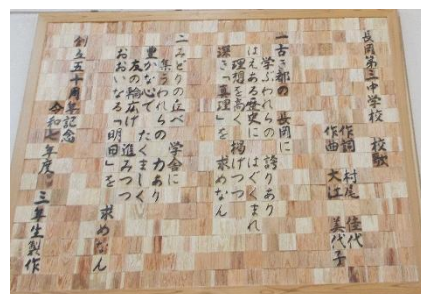 長岡第三中学校 校歌
作詞 村尾 佳代
作曲 大江 美代子
一 古き都の 長岡に
学ぶわれらの 誇りあり
はえある歴史に はぐくまれ
理想を高く 掲げつつ
深き「真理」を 求めなん
二 みどりの丘べ 学舎に
集うわれらの 力あり
豊かな心で たくましく
友の輪広げ 進みつつ
おおいなる「明日」を 求めなん
創立五十周年記念
令和七年度 三年生製作